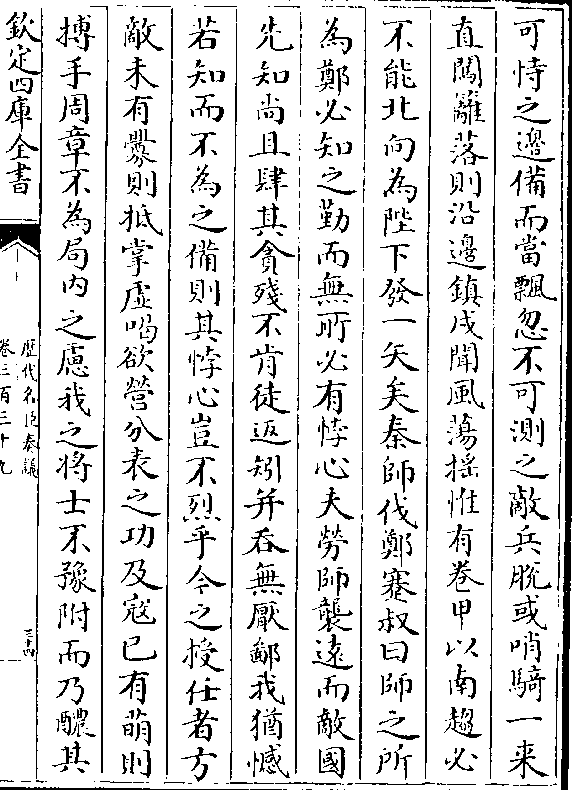 可恃之邊備而當飄忽不可測之敵兵脫或哨騎一来
直闖籬落則沿邊鎮戍聞風蕩揺惟有卷甲以南趨必
不能北向為陛下發一矢矣秦師伐鄭蹇叔曰師之所
為鄭必知之勤而無所必有悖心夫勞師襲遠而敵國
先知尚且肆其貪殘不肯徒返矧并吞無厭鄙我猶憾
若知而不為之備則其悖心豈不烈乎今之授任者方
敵未有釁則抵掌虛喝欲營分表之功及寇已有萌則
搏手周章不為局内之慮我之將士不豫附而乃醲其
欽定四庫全書
歴代名臣奏議
卷三百三十九
三十四